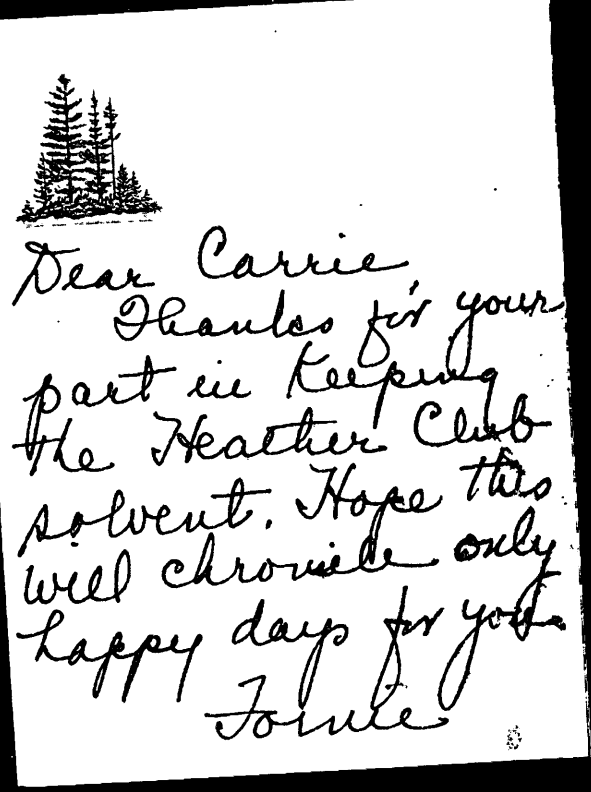 Dear Carrie,
Thanks for your
part in Keeping
the Heather Club
solvent. Hope this
will chronicle only
happy days for you.